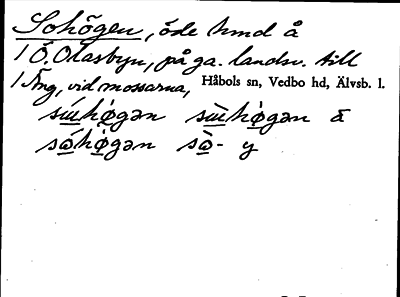 Sohögen, öde hmd å
1 Ö. Olasbyn, på ga. landsv. till
1 Äng, vid mossarna, Håbols sn, Vedbo hd, Älvsb. l.
sɯ́hø̀gən sɯ̀hø̀gən ä
sώhø̀gən sὼ- y